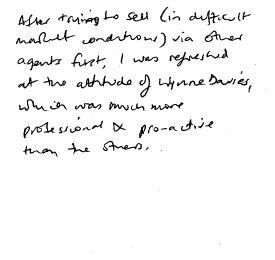 After trying to sell (in difficult
market conditions) via other
agents first, I was refreshed
at the attitude of Wynne Davies,
which was much more
professional & pro-active
than the others.